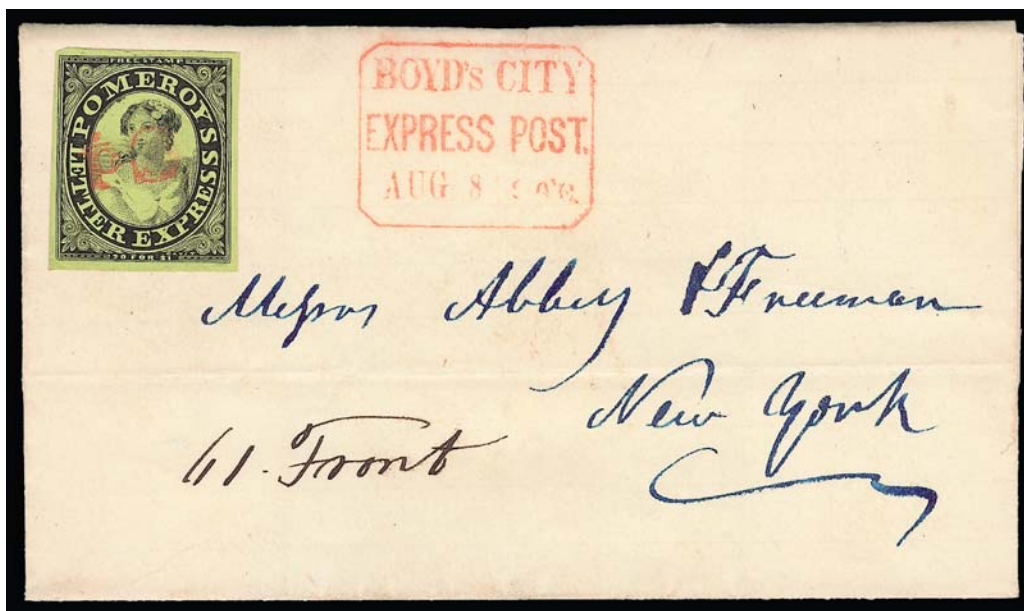 FREE STAMP
POMEROY'S
LETTER EXPRESS
20 FOR $1
BOYD's CITY
EXPRESS POST.
AUG 8
Messrs Abbey & Freeman
New York
61. Front